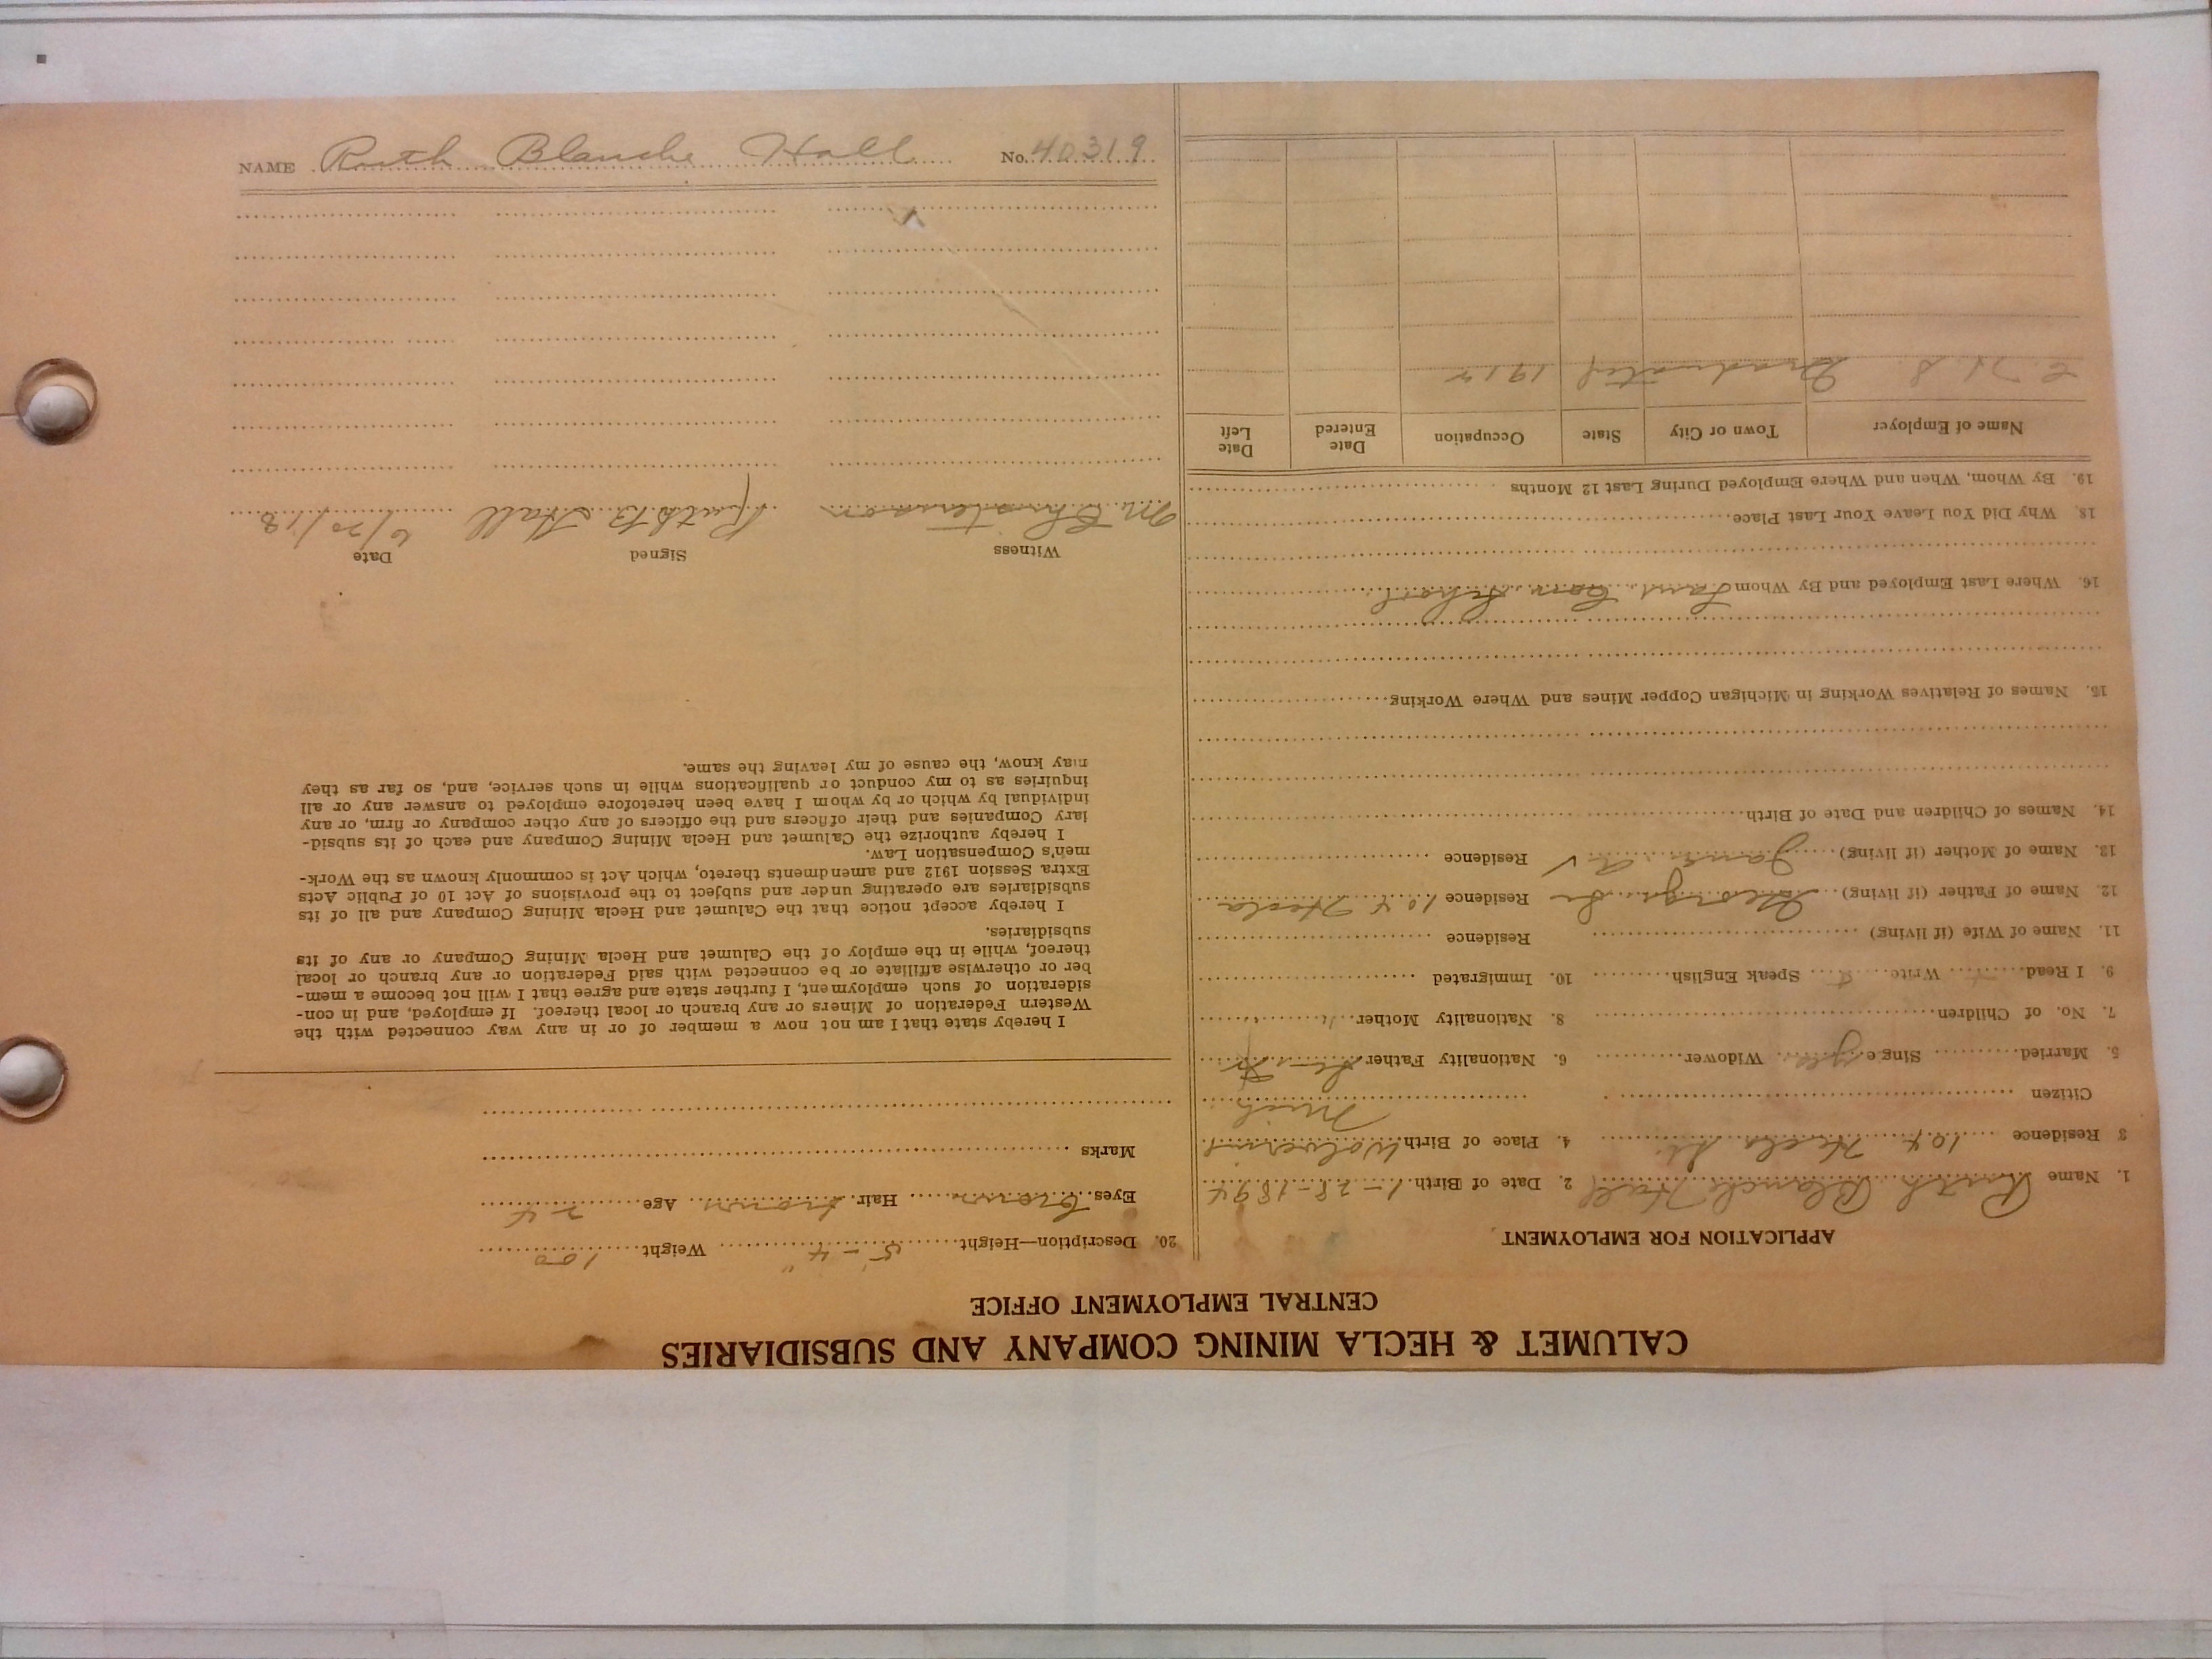 CALUMET & HECLA MINING COMPANY AND SUBSIDIARIES
CENTRAL EMPLOYMENT OFFICE
APPLICATION FOR EMPLOYMENT
1. Name Ruth Blanche Hall 2. Date of Birth 1-28-1894
3 Residence 104 Hecla St. 4. Place of Birth Wolverine
Mich
Citizen
5. Married Single yes Widower 6. Nationality Father
7. No. of Children 8. Nationality Mother
9. I Read Write Speak English 10. Immigrated
11. Name of Wife (if living) Residence
12. Name of Father (if living) George Sr Residence 104 Hecla
13. Name of Mother (if living) Jane Residence
14. Names of Children and Date of Birth
15. Names of Relatives Working in Michigan Copper Mines and Where Working
16. Where Last Employed and By Whom School
18. Why Did You Leave Your Last Place
19. By Whom, When and Where Employed During Last 12 Months
Name of Employer Town or City State Occupation Date Entered Date Left
C. H. S Graduated 1914
20. Description—Height 5'-4" Weight 100
Eyes Brown Hair brown Age 24
Marks
I hereby state that I am not now a member of or in any way connected with the
Western Federation of Miners or any branch or local thereof. If employed, and in con-
sideration of such employment, I further state and agree that I will not become a mem-
ber or otherwise affiliate or be connected with said Federation or any branch or local
thereof, while in the employ of the Calumet and Hecla Mining Company or any of its
subsidiaries.
I hereby accept notice that the Calumet and Hecla Mining Company and all of its
subsidiaries are operating under and subject to the provisions of Act 10 of Public Acts
Extra Session 1912 and amendments thereto, which Act is commonly known as the Work-
men's Compensation Law.
I hereby authorize the Calumet and Hecla Mining Company and each of its subsid-
iary Companies and their officers and the officers of any other company or firm, or any
individual by which or by whom I have been heretofore employed to answer any or all
inquiries as to my conduct or qualifications while in such service, and, so far as they
may know, the cause of my leaving the same.
Witness Signed Date
M. Christenson Ruth B Hall 6/20/18
NAME Ruth Blanche Hall No. 40319